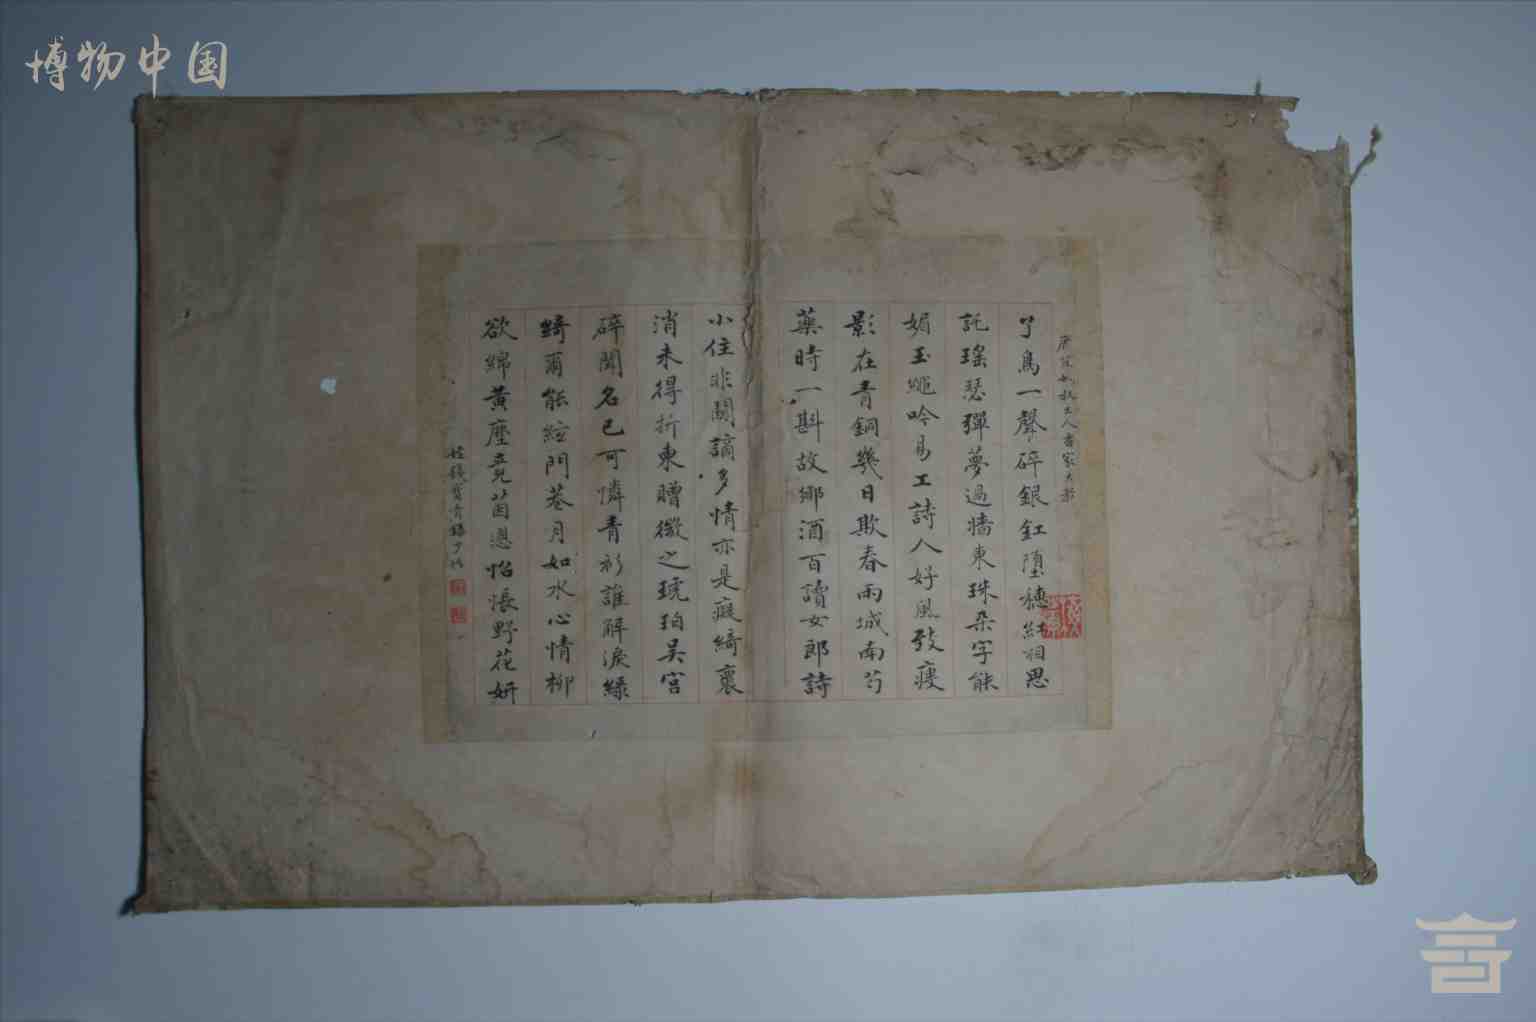 博物中国
了鳥一聲碎銀釭墮穗紅相思
託瑤瑟彈夢過牆東珠朵字能
媚玉繩吟易工詩人好風致瘦
影在青銅幾日欺春雨城南芍
藥時一斟故鄉酒百讀女郎詩
小住非關謫多情亦是癡綺裏
消未得折柬贈微之琥珀吴宮
碎聞名已可憐青衫誰解淚綠
綺爾能絃門巷月如水心情柳
欲綿黃塵竟茵恖怊悵野花妍